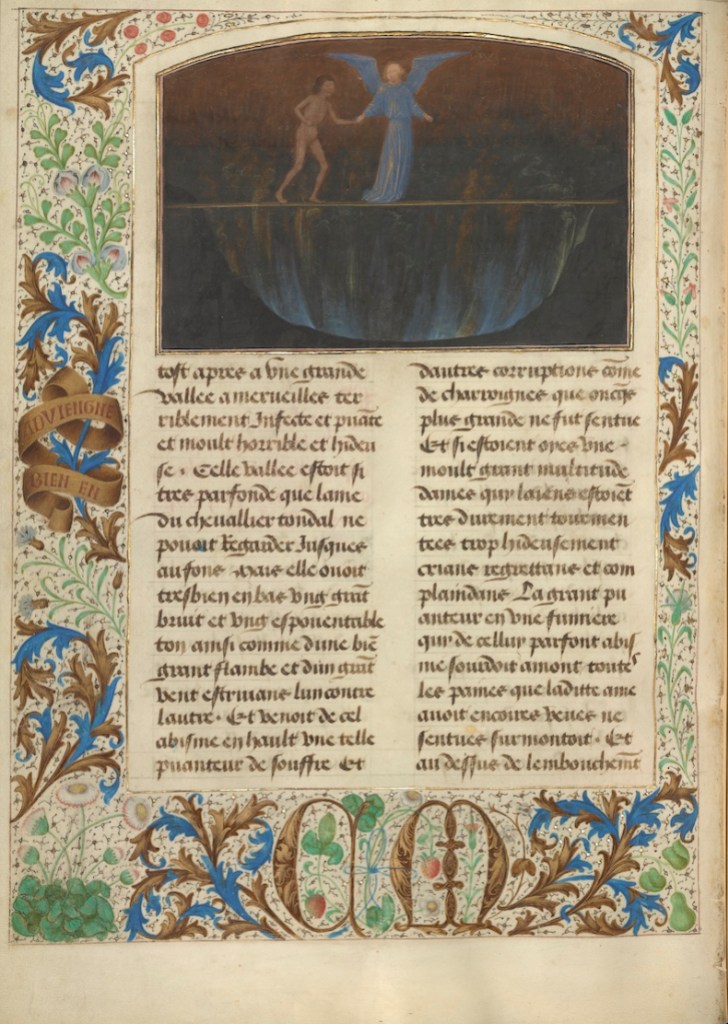 ADVIENGNE
BIEN EN
tost apres a vne grande
vallee a merueilles ter
riblement Infecte et puāte
et moult horrible et hideu
se · Celle vallee estoit si
tres parfonde que lame
du cheuallier tondal ne
pouoit Regarder Jusques
au fons · Mais elle ouoit
tresbien en bas vng grāt
bruit et vng espouentable
ton ainsi comme dune biē
grant flambe et dun grāt
vent estriuans lun contre
lautre · Et venoit de cel
abisme en hault vne telle
puanteur de souffre Et
dautres corruptions cōme
de charroignes que oncqs
plus grande ne fut sentue
Et si estoient oyes vne
moult grant multitude
dames qui laiens estoiēt
tres durement tourmen
tees trop hideusement
crians regrettans et com
plaindans La grant pu
anteur en vne fumiere
qui de celluy parfont abis
me sourdoit amont toutes
les paines que laditte ame
auoit encores veues ne
sentues surmontoit · Et
au dessus de lembouchemt
C M